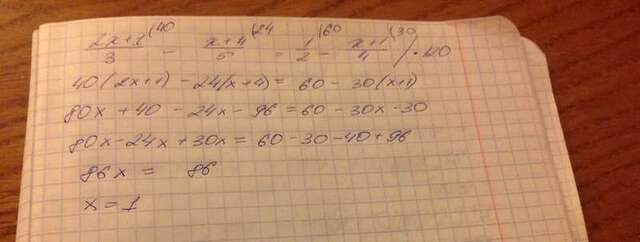 (2x+1)/3 (40 - (x+4)/5 (24 = 1/2 (60 - (x+1)/4 (30 / · 120
40(2x+1) - 24(x+4) = 60 - 30(x+1)
80x + 40 - 24x - 96 = 60 - 30x - 30
80x - 24x + 30x = 60 - 30 - 40 + 96
86x = 86
x = 1